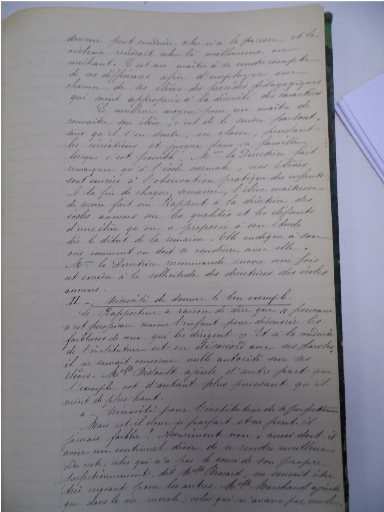 donne peut conduire celui-ci à la paresse et la
violence rendrait celui-là
méchant. C'est au maître à se rendre compte
de ces différences afin d'employer avec
chacun de ses élèves des procédés pédagogiques
qui soient appropriés à la diversité des caractères
Le meilleur moyen pour un maître de
connaître son élève, c'est de le suivre partout,
sans qu'il s'en doute, en classe, pendant
les récréations et jusque dans sa famille
lorsque c'est possible. Mme la Directrice fait
remarquer qu'à l'école normale, nos élèves
sont exercées à l'observation pratique des enfants
A la fin de chaque semaine, l'élève maîtresse
de service fait un Rapport à la directrice des
écoles annexes sur les qualités et les défauts
d'une élève qu'on a proposée à son étude
dès le début de la semaine. Elle indique à son
avis comment on doit se conduire avec elle.
Mme la Directrice recommande encore une fois
cet exercice à la sollicitude des directrices des écoles
annexes.
II. Nécessité de donner le bon exemple.
Le Rapporteur a raison de dire que personne
n'est perspicace comme l'enfant pour découvrir les
faiblesses de ceux qui le dirigent. Si la conduite
de l'instituteur est en désaccord avec ses paroles,
il ne saurait conserver nulle autorité sur ses
élèves. Mlle ajoute d'autre part que
l'exemple est d'autant plus puissant qu'il
vient de plus haut.
a. Nécessité pour l'instituteur de se perfectionner
Mais est-il donc si parfait et ne peut-il
jamais faiblir? Assurément non, aussi doit-il
avoir un continuel désir de se rendre meilleur.
Du reste, celui qui n'a pas le souci de son propre
perfectionnement, dit Mlle, ne saurait être
très exigeant pour les autres. Mlle Marchand ajoute
que dans la vie morale, celui qui n'avance pas, recule